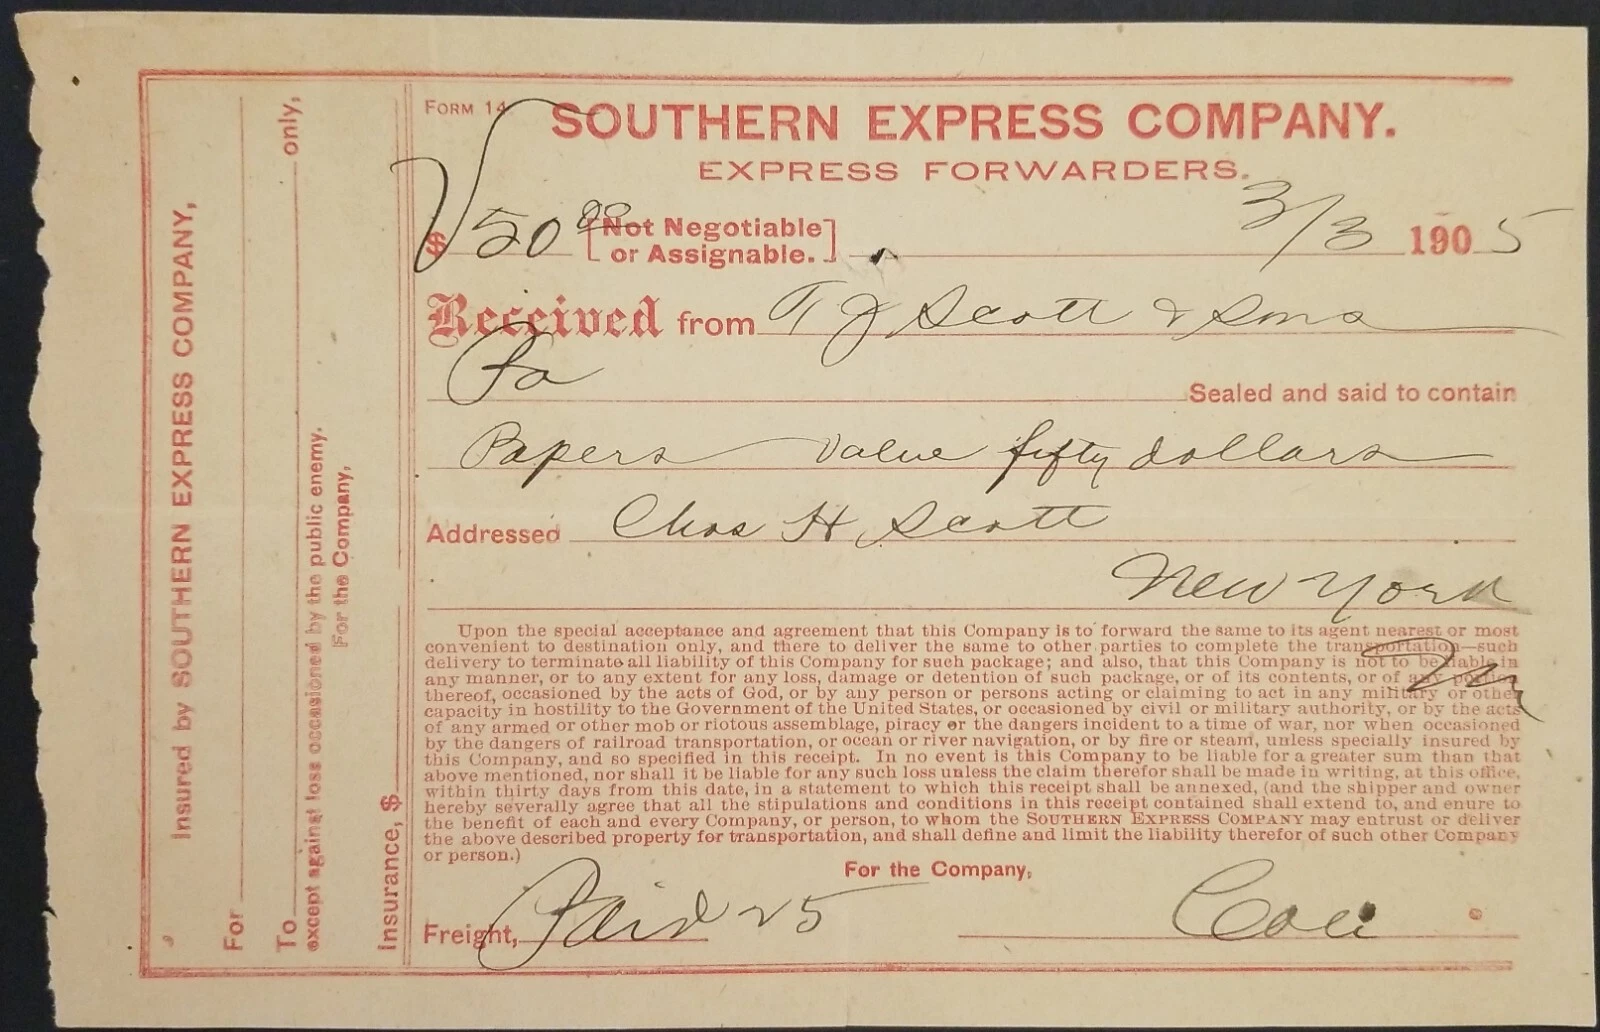 Insured by SOUTHERN EXPRESS COMPANY,
For
To only,
except against loss occasioned by the public enemy.
For the Company,
Insurance, $
FORM 14.
SOUTHERN EXPRESS COMPANY.
EXPRESS FORWARDERS.
$ 50 00 [Not Negotiable or Assignable.] 3/3 1905
Received from T J Scott & Sons
Pa Sealed and said to contain
Papers value fifty dollars
Addressed Chas H Scott
New York
Upon the special acceptance and agreement that this Company is to forward the same to its agent nearest or most
convenient to destination only, and there to deliver the same to other parties to complete the transportation—such
delivery to terminate all liability of this Company for such package; and also, that this Company is not to be liable in
any manner, or to any extent for any loss, damage or detention of such package, or of its contents, or of any portion
thereof, occasioned by the acts of God, or by any person or persons acting or claiming to act in any military or other
capacity in hostility to the Government of the United States, or occasioned by civil or military authority, or by the acts
of any armed or other mob or riotous assemblage, piracy or the dangers incident to a time of war, nor when occasioned
by the dangers of railroad transportation, or ocean or river navigation, or by fire or steam, unless specially insured by
this Company, and so specified in this receipt. In no event is this Company to be liable for a greater sum than that
above mentioned, nor shall it be liable for any such loss unless the claim therefor shall be made in writing, at this office,
within thirty days from this date, in a statement to which this receipt shall be annexed, (and the shipper and owner
hereby severally agree that all the stipulations and conditions in this receipt contained shall extend to, and enure to
the benefit of each and every Company, or person, to whom the SOUTHERN EXPRESS COMPANY may entrust or deliver
the above described property for transportation, and shall define and limit the liability therefor of such other Company
or person.)
For the Company,
Freight, Paid 25